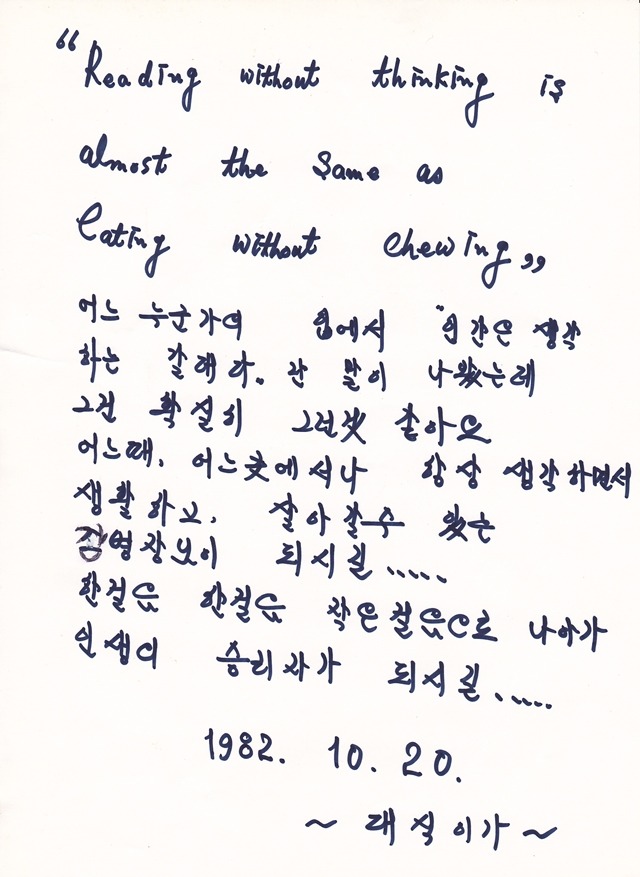 “Reading without thinking is
almost the same as
Eating without chewing,,
어느 누군가의 입에서 "인간은 생각
하는 갈대다. 란 말이 나왔는데
그건 확실히 그런것 같아요
어느때, 어느곳에서나 항상 생각하면서
생활하고, 살아갈수 있는
영장님이 되시길.....
한걸음 한걸음 작은걸음으로 나아가
인생의 승리자가 되시길.....
1982. 10. 20.
~ 대식이가 ~